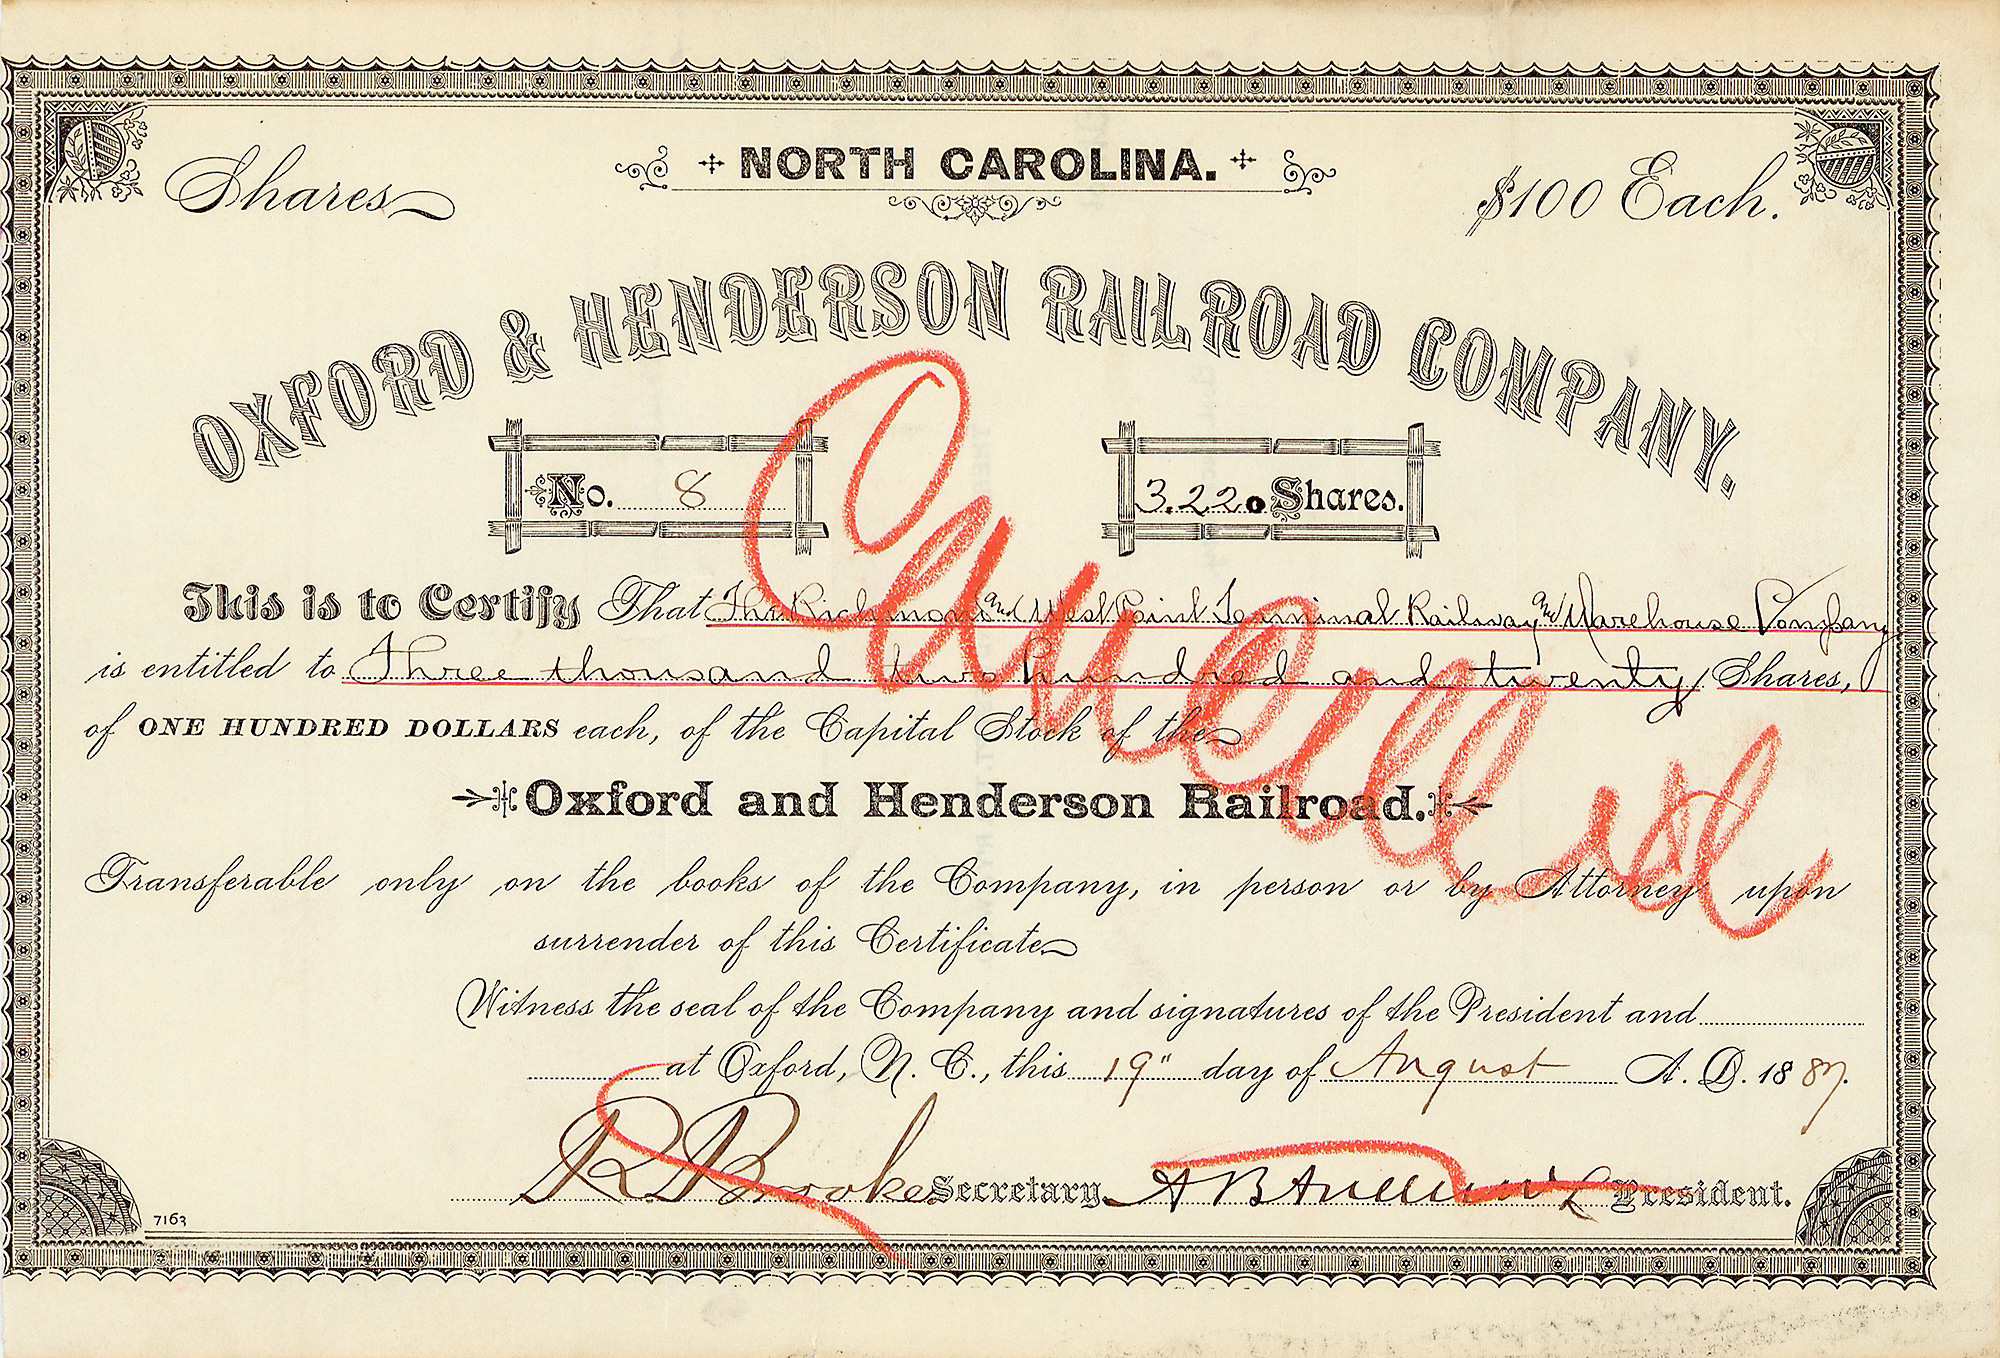 NORTH CAROLINA.
Shares
$100 Each.
OXFORD & HENDERSON RAILROAD COMPANY.
No. 8
3.220 Shares.
Cancelled
This is to Certify That The Richmond and West Point Terminal Railway and Warehouse Company
is entitled to Three thousand two hundred and twenty Shares,
of ONE HUNDRED DOLLARS each, of the Capital Stock of the
Oxford and Henderson Railroad.
Transferable only on the books of the Company, in person or by Attorney upon
surrender of this Certificate
Witness the seal of the Company and signatures of the President and
at Oxford, N. C., this 19" day of August A. D. 1887.
R Brooke Secretary. A B Andrews President.
7163